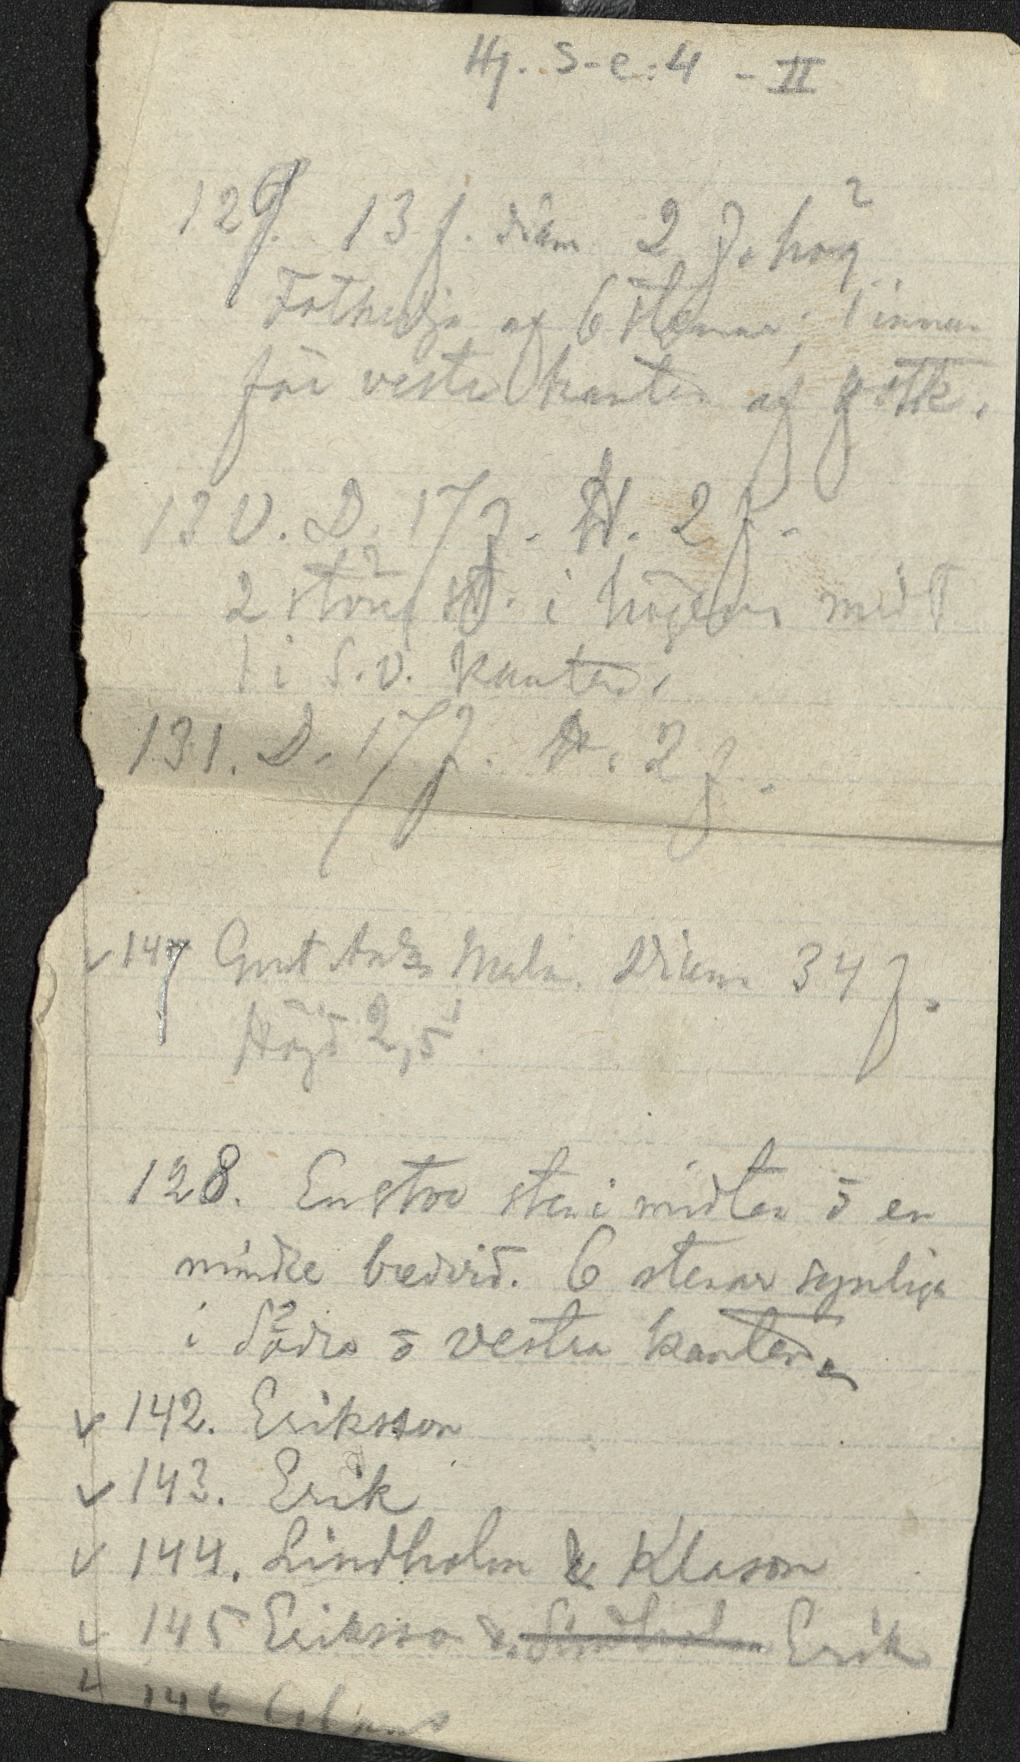 Hj. S-e:4 - II
129. 13 f. diam 2 f. hög
Fotkedja af 6 stenar; 1 innan
för vestra kanten af
130. D. 17 f. H. 2 f.
2 större st. i högens midt
1 i S.V. kanten.
131. D. 17 f. H. 2 f.
147 Gust And. Diam 34 f.
Höjd 2,5
128. En stor sten i midten o en
mindre bredvid. 6 stenar synliga
i Södra o vestra kanten.
142. Eriksson
143. Erik
144. Lindholm & Klason
145 Eriksso & Lindholm Erik
146